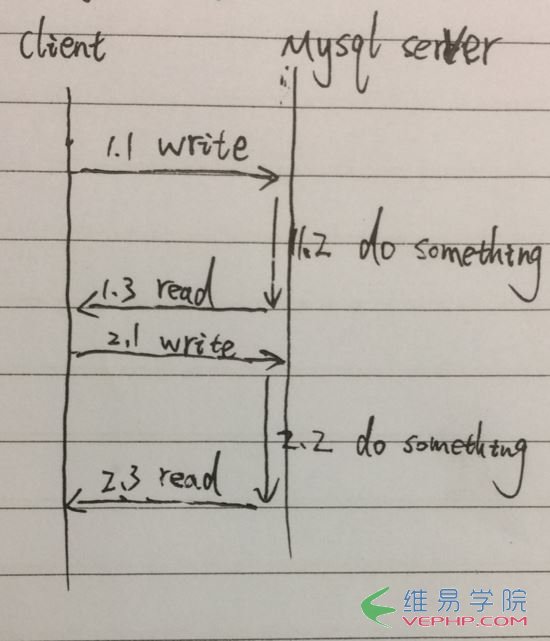 client Mysql server
1.1 write
1.2 do something
1.3 read
2.1 write
2.2 do something
2.3 read
维易学院
VEPHP.COM